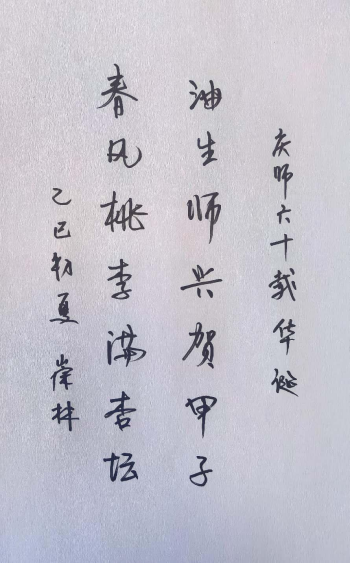 庆师六十载华诞
油生师兴贺甲子
春风桃李满杏坛
乙巳初夏 崇林